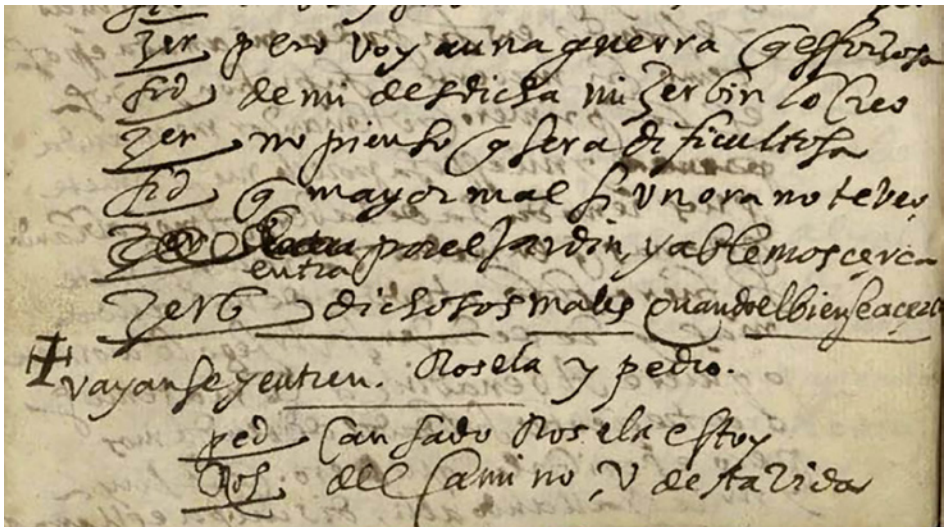 zer pero voy a una guerra q es forzosa
fid de mi desdicha mi Zerbin lo creo
zer no pienso q sera dificultosa
fid q mayor mal si un ora no te veo
por el Jardin, y ablemos cerca
entra
Zerb dichosos males quando el bien se acerca
vayanse y entren. Rosela y pedro.
ped Cansado Rosela estoy
Ros del Camino, v desta vida